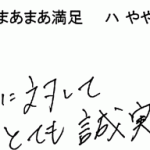 まあまあ満足 ハ やや
に対して
とても誠実